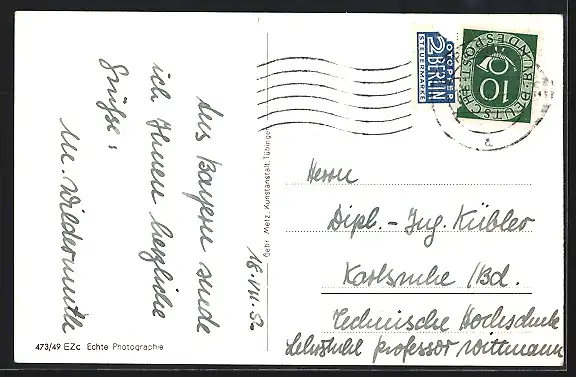 Aus Bayern sende
ich Ihnen herzliche
Grüsse:
M. Wildermuth
18. VII. 52
Gebr. Metz, Kunstanstalt, Tübingen
473/49 EZc Echte Photographie
NOTOPFER
2 BERLIN
STEUERMARKE
DEUTSCHE BUNDESPOST
10
Herrn
Dipl.-Ing. Kübler
Karlsruhe /Bd.
Technische Hochschule
Lehrstuhl Professor Wittmann